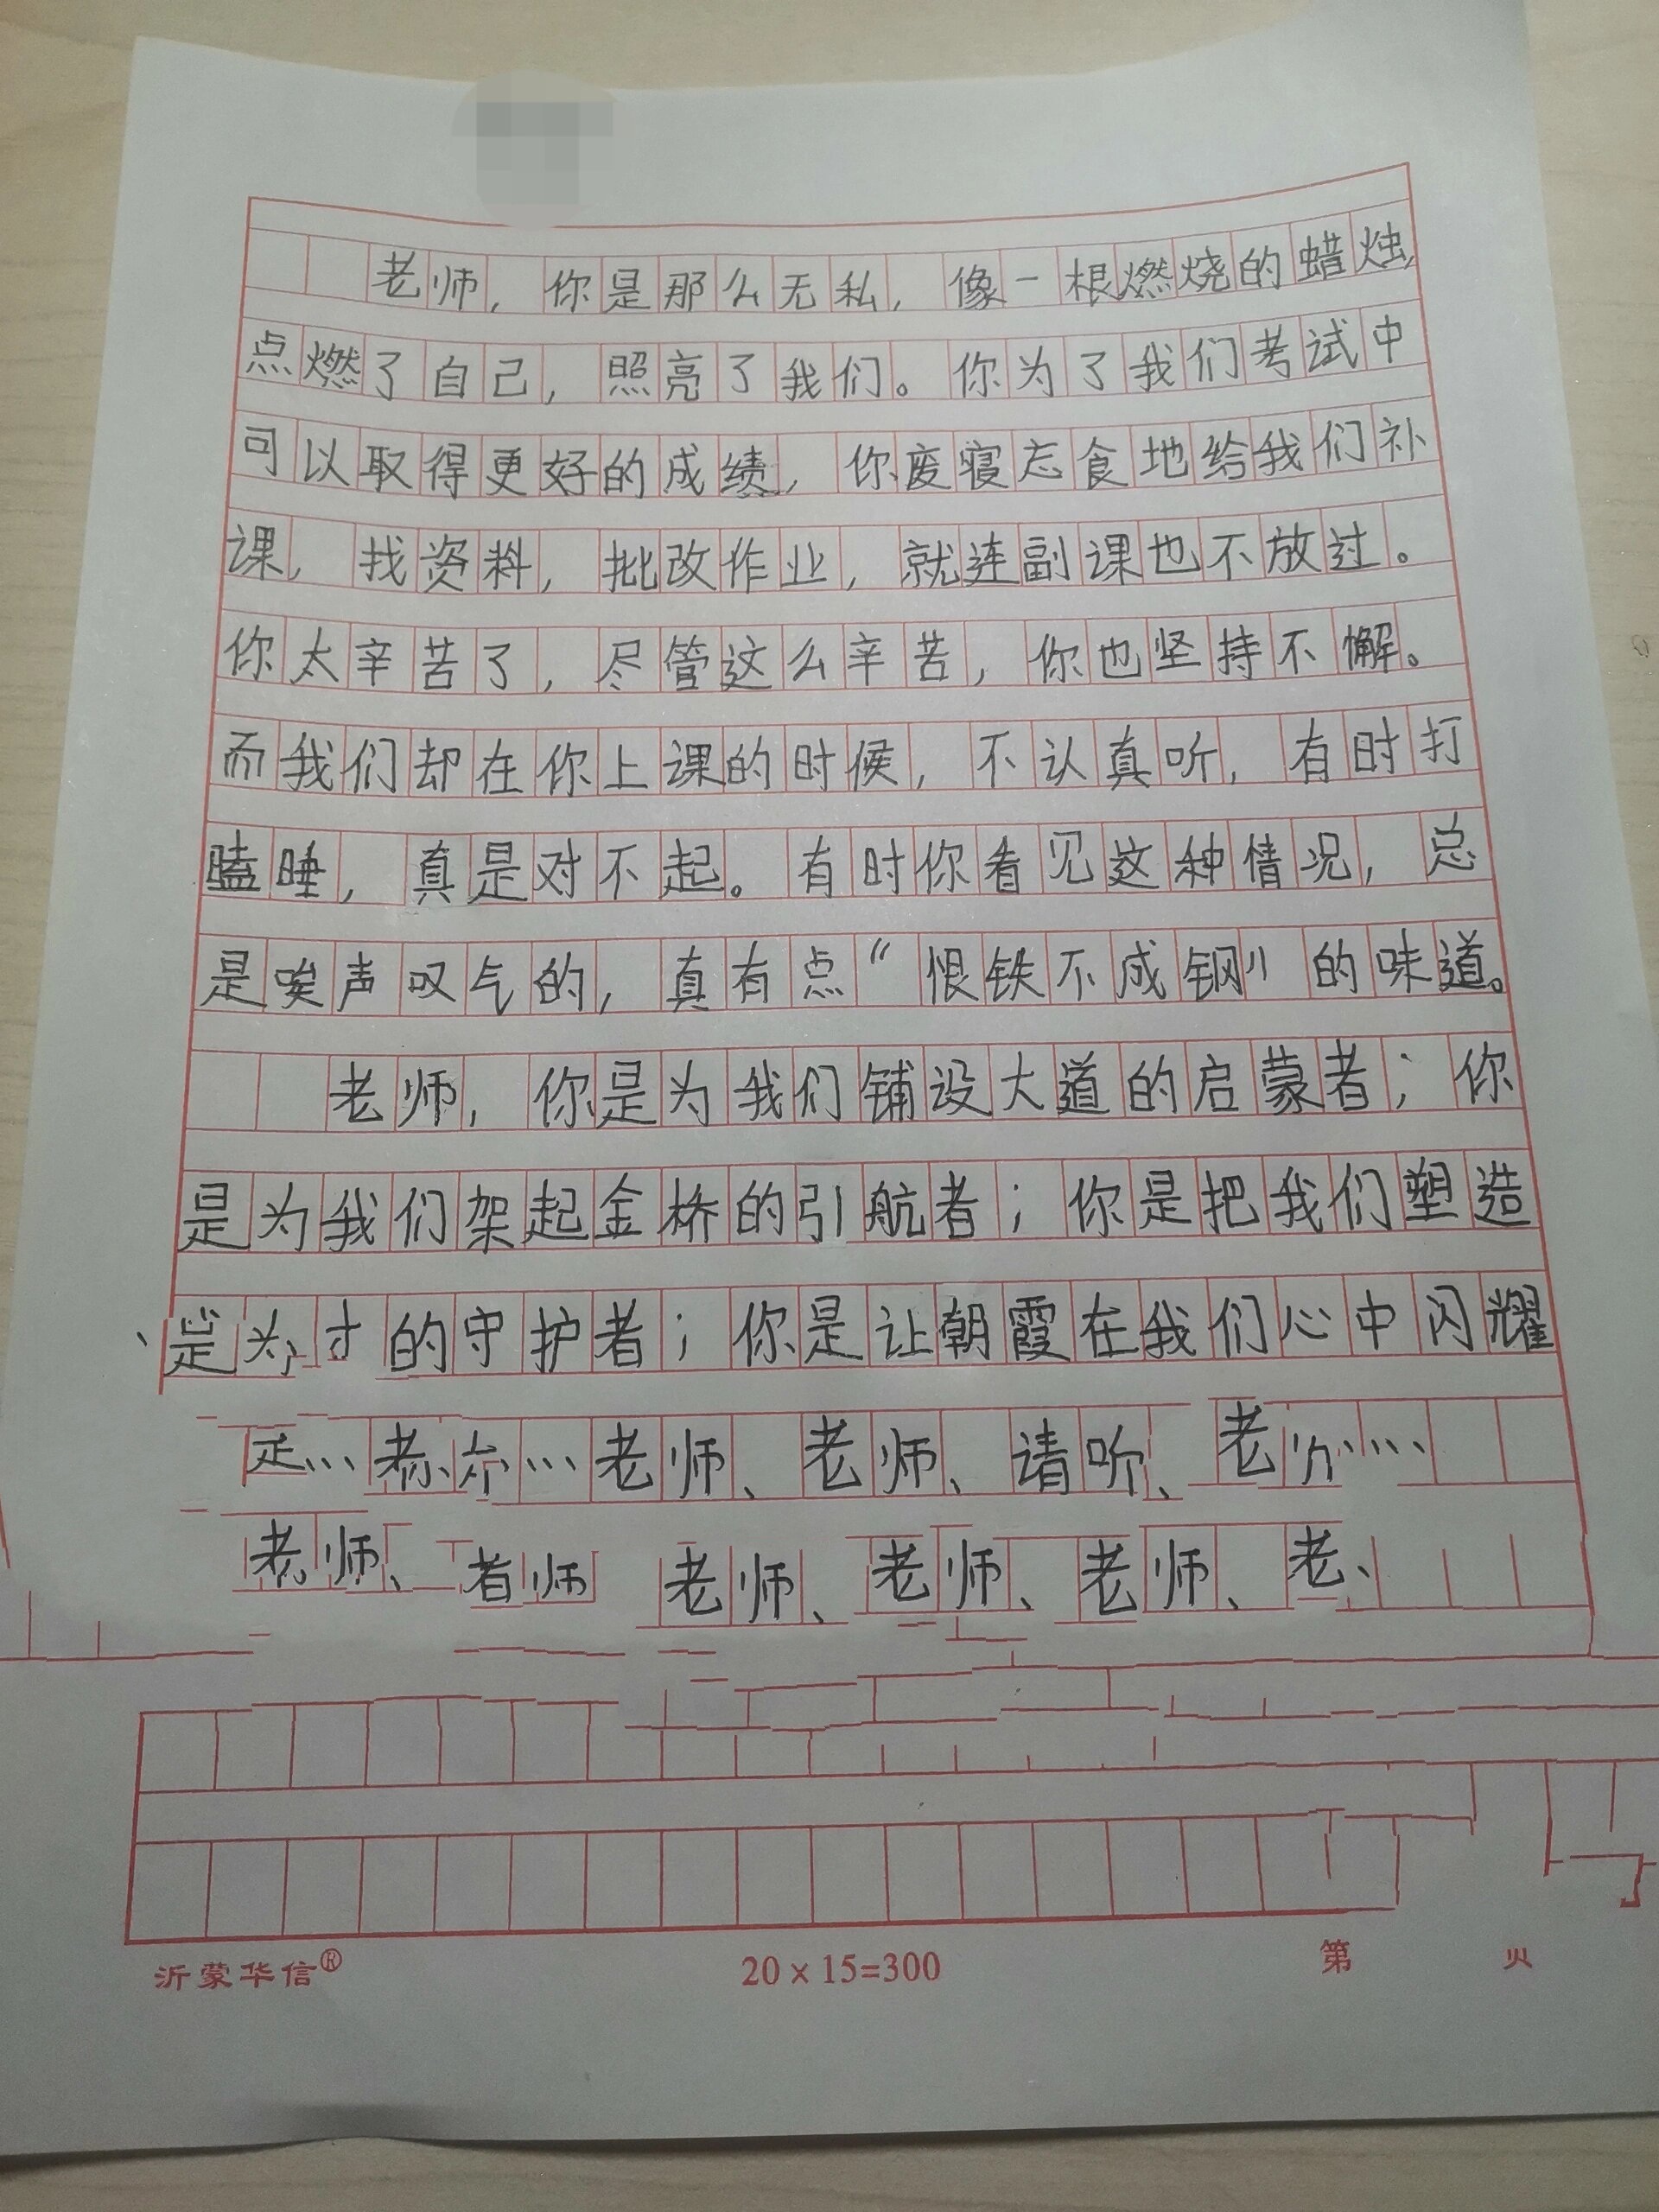 老师，你是那么无私，像一根燃烧的蜡烛，
点燃了自己，照亮了我们。你为了我们考试中
可以取得更好的成绩，你废寝忘食地给我们补
课，找资料，批改作业，就连副课也不放过。
你太辛苦了，尽管这么辛苦，你也坚持不懈。
而我们却在你上课的时候，不认真听，有时打
瞌睡，真是对不起。有时你看见这种情况，总
是唉声叹气的，真有点“恨铁不成钢”的味道。
老师，你是为我们铺设大道的启蒙者；你
是为我们架起金桥的引航者；你是把我们塑造
为才的守护者；你是让朝霞在我们心中闪耀
老师、老师、请听、老
老师、老师、老师、老师、老、
沂蒙华信®
20×15=300
第 页